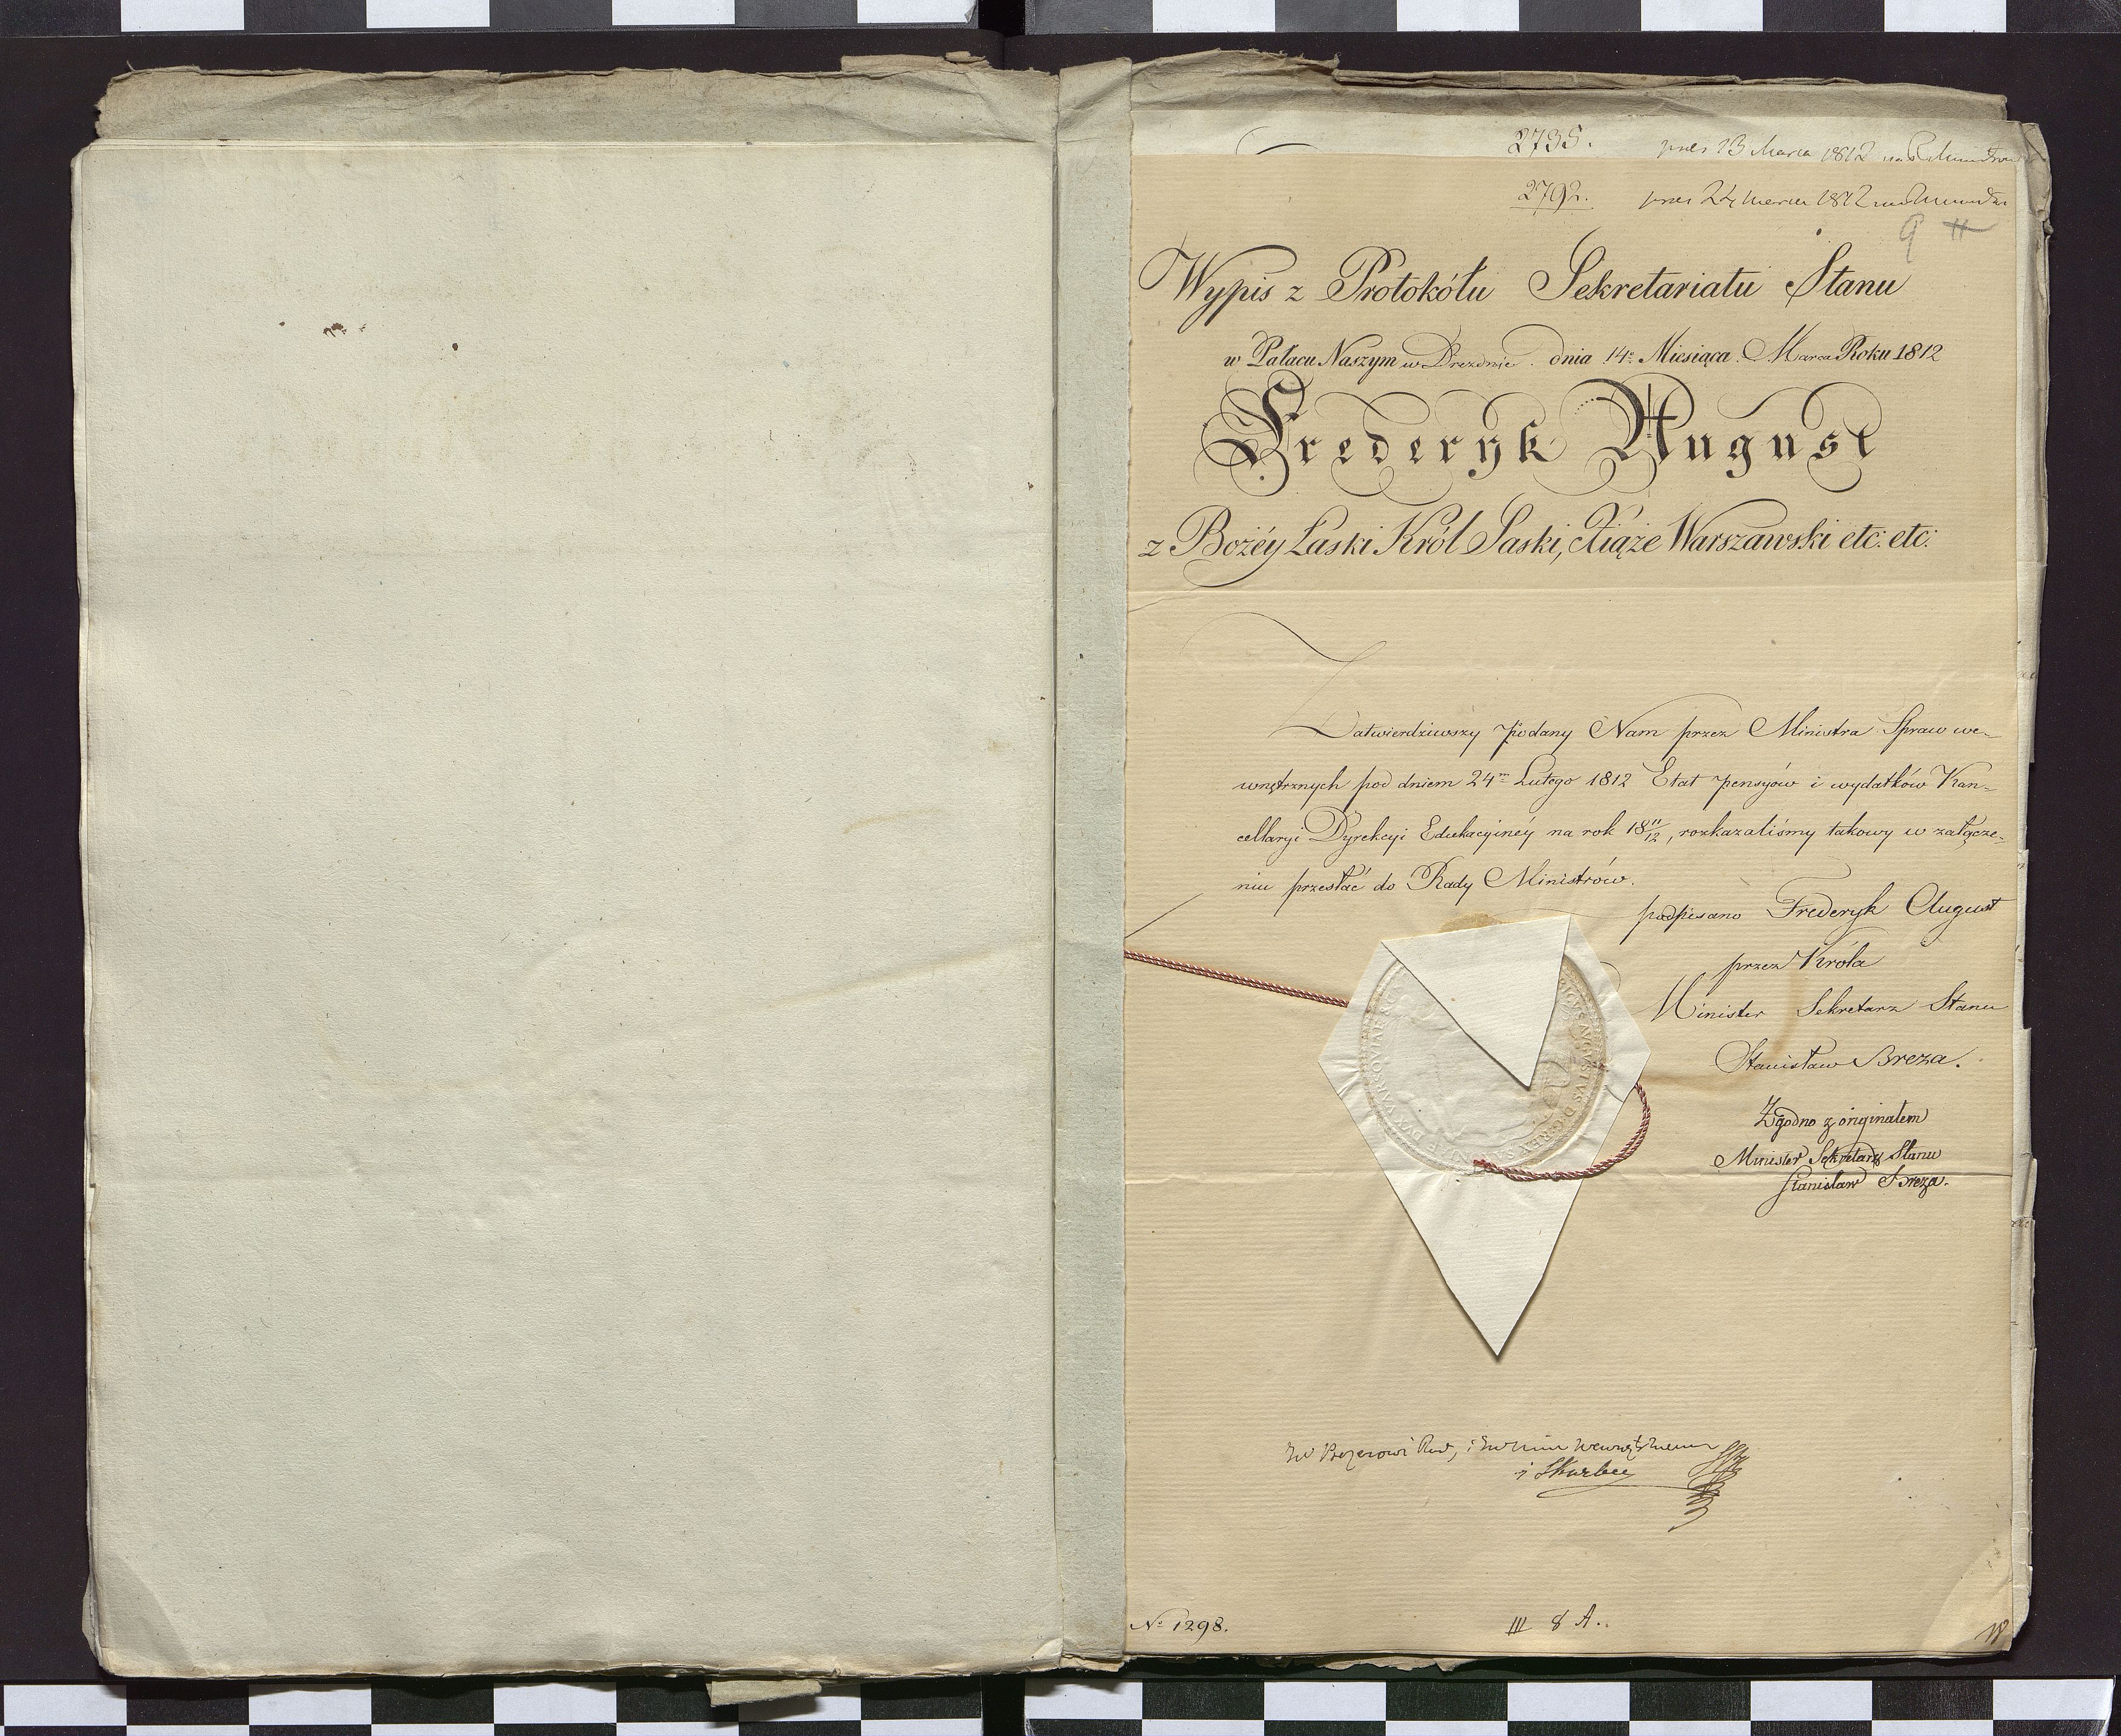 2735. pres 13 Marca 1812 na R
2792. pres 24 marca 1812
9 #
Wypis z Protokółu Sekretariatu Stanu
w Pałacu Naszym w Dreznie dnia 14º Miesiąca Marca Roku 1812
Frederyk August
z Bożéy Łaski Król Saski, Xiąże Warszawski etc: etc:
Zatwierdziwszy podany Nam przez Ministra Spraw we-
wnętrznych pod dniem 24m Lutego 1812 Etat pensyów i wydatków Kan-
cellaryi Dyrekcyi Edukacyinéy na rok 18 11/12, rozkazaliśmy takowy w załącze-
niu przesłać do Rady Ministrów.
podpisano Frederyk August
przez Króla
Minister Sekretarz Stanu
Stanisław Breza.
Zgodno z originałem
Minister Sekretarz Stanu
Stanisław Breza.
AUGUSTUS D.G. REX DUX VARSOVIAE
i Skarbu
Nº 1298.
III 8 A.